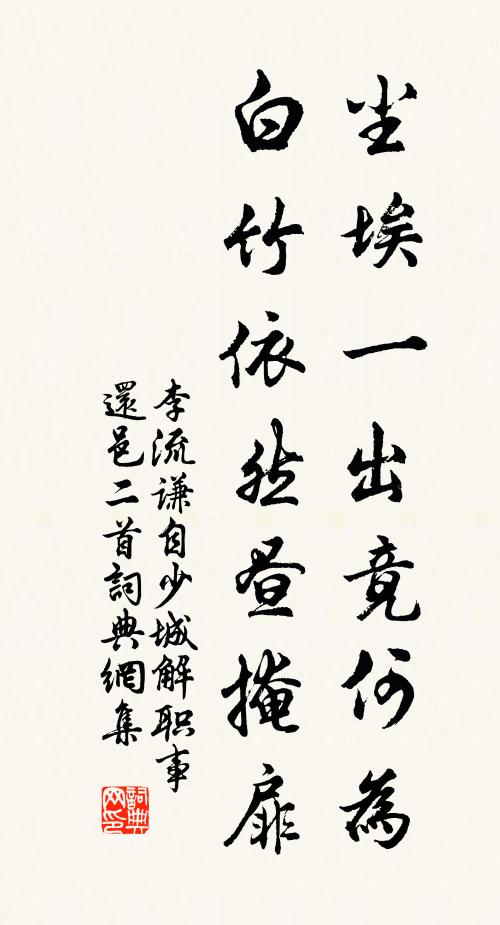 尘埃一出竟何為
白竹依然昼掩扉
李流谦自少城解职事
還邑二首詞典網集
詞典网印